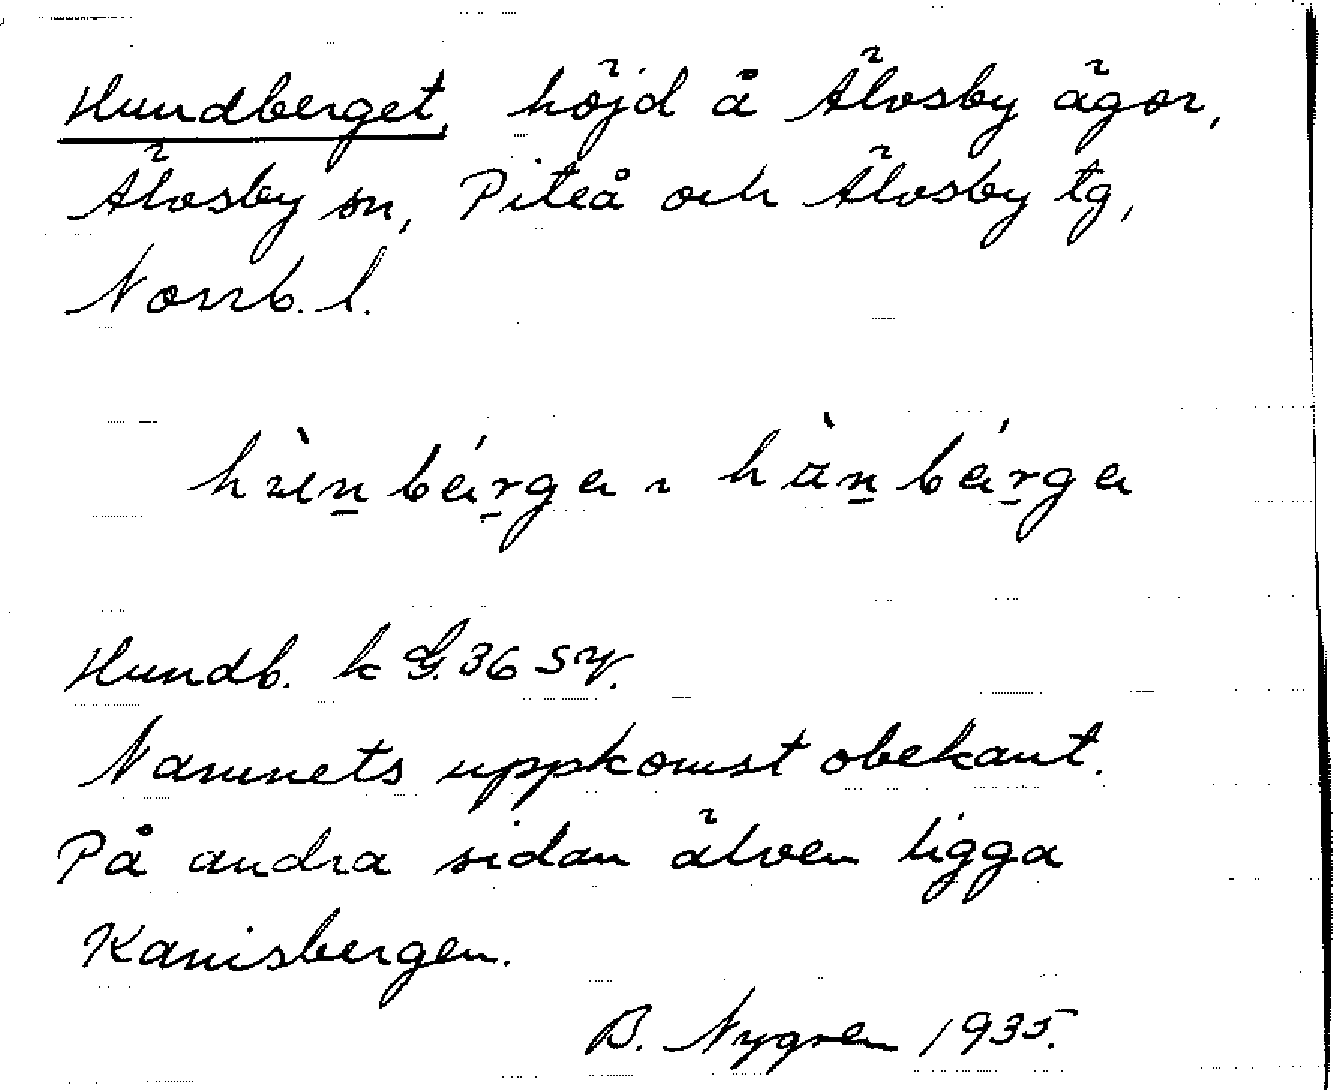 Hundberget, höjd å Älvsby ägor,
Älvsby sn, Piteå och Älvsby tg,
Norrb. l.
hùnbérga ~ hànbérga
Hundb. k G. 36 SV.
Namnets uppkomst obekant.
På andra sidan älven ligga
Kanisbergen.
B. Nygren 1935.